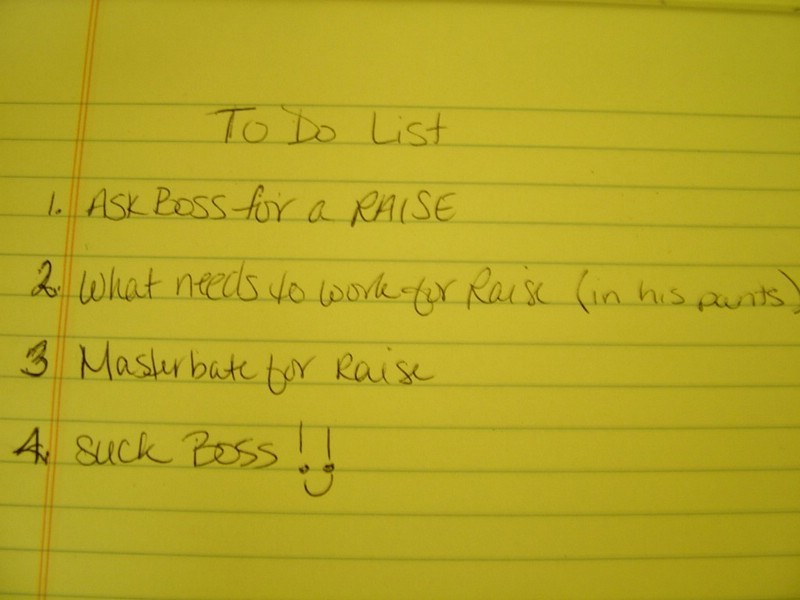 To Do List
1. ASK BOSS for a RAISE
2. What needs to work for Raise (in his pants)
3 Masterbate for Raise
4. suck Boss !!